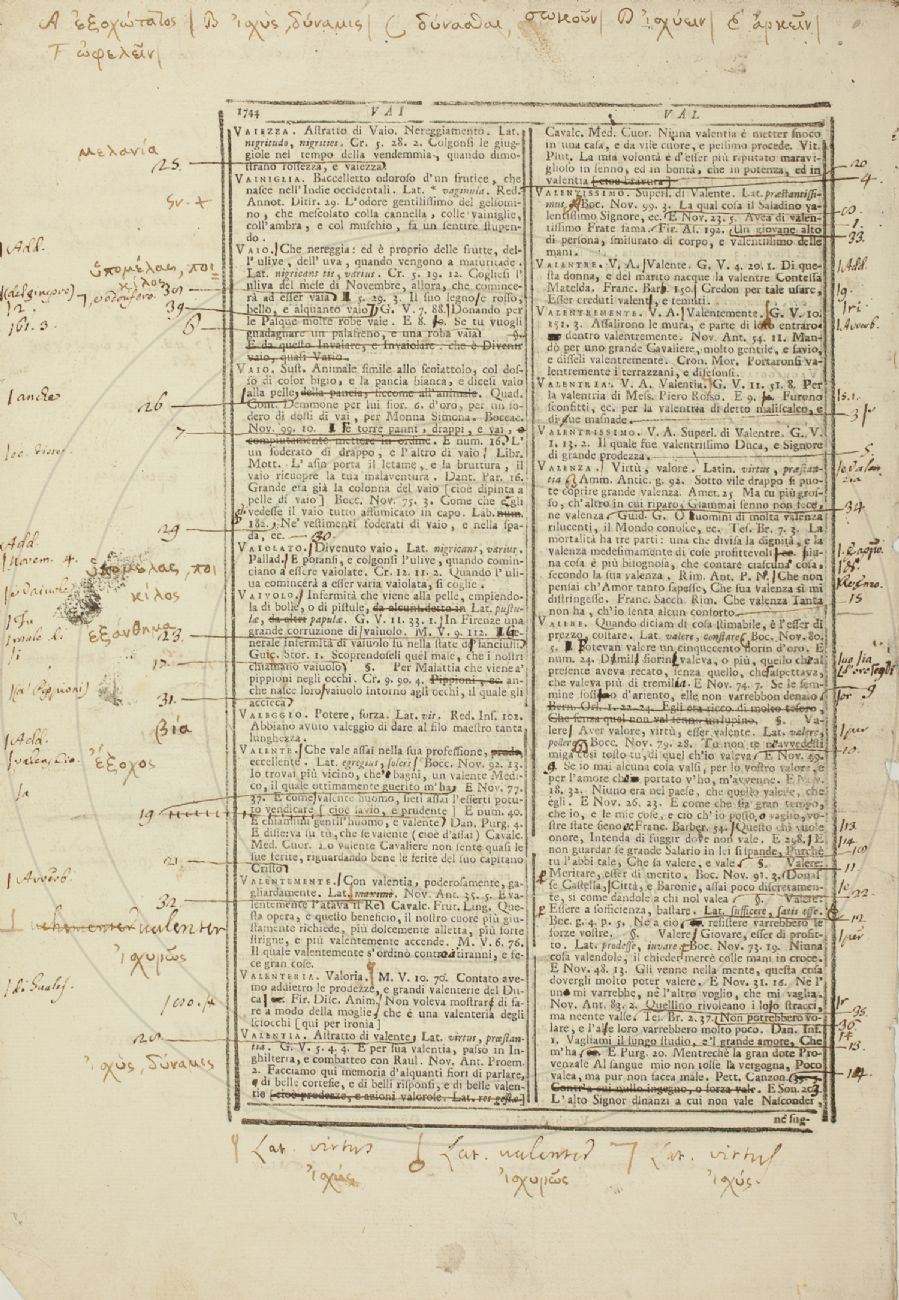 A ἐξοχώτατος | B ἰσχὺς, δύναμις | C δύνασθαι, σωκοῦν | D ἰσχύειν | E ἀρκεῖν |
F ὠφελεῖν |
1744 VAI VAL
μελανία
25
VAIEZZA. Astratto di Vaio. Nereggiamento. Lat.
nigritudo, nigrities. Cr. 5. 28. 2. Colgonsi le giug-
giole nel tempo della vendemmia, quando dimo-
strano rossezza, e vaiezza
VAINIGLIA. Baccelletto odoroso d'un frutice, che
nasce nell'Indie occidentali. Lat. * vaginula. Red.
Annot. Ditir. 29. L'odore gentilissimo del gelsomi-
no, che mescolato colla cannella, colle vainiglie,
coll'ambra, e col muschio, fa un sentire stupen-
do.
VAIO. Che nereggia: ed è proprio delle frutte, del-
l'ulive, dell'uva, quando vengono a maturitade.
Lat. nigricans tis, varius. Cr. 5. 19. 12. Cogliesi l'
uliva del mese di Novembre, allora, che comince-
rà ad esser vaia 5. 29. 3. Il suo legno è rosso,
bello, e alquanto vaio G. V. 7. 88. Donando per
le Pasque molte robe vaie. E 8. Se tu vuogli
guadagnare un palafreno, e una roba vaia
E da questo Invaiare, e Invaiolare: che è Divenir
vaio, quasi Vario.
VAIO. Sust. Animale simile allo scoiattolo, col dos-
so di color bigio, e la pancia bianca, e dicesi vaio
alla pelle della pancia, siccome all'animale. Quad.
Cont. Demmone per lui fior. 6. d'oro, per un fo-
dero di dossi di vai, per Monna Simona. Boccac.
Nov. 99. 10. Fe torre panni, drappi, e vai, e
compiutamente mettere in ordine. E num. 16. L'
un foderato di drappo, e l'altro di vaio. Libr.
Mott. L'asio porta il letame, e la bruttura, il
vaio ricuopre la tua malaventura. Dant. Par. 16.
Grande era già la colonna del vaio [cioè dipinta a
pelle di vaio] Bocc. Nov. 75. 3. Come che egli
vedesse il vaio tutto affumicato in capo. Lab. num.
182. Ne' vestimenti foderati di vaio, e nella spa-
da, ec. 30
VAIOLATO. Divenuto vaio. Lat. nigricans, varius.
Pallad. E poransi, e colgonsi l'ulive, quando comin-
ciano a essere vaiolate. Cr. 12. 11. 2. Quando l'uli-
va comincerà a esser varia vaiolata, si coglie.
VAIVOLO. Infermità che viene alla pelle, empiendo-
la di bolle, o di pistule, da alcuni detto in Lat. pustu-
læ, da altri papulæ. G. V. 11. 33. 1. In Firenze una
grande corruzione di vaiuolo. M. V. 9. 112. Ge-
nerale infermità di vaiuolo fu nella state di fanciulli
Guic. Stor. 1. Scoprendosegli quel male, che i nostri
chiamano vaiuolo §. Per Malattia che viene a'
pippioni negli occhi. Cr. 9. 90. 4. Pippioni, ec. an-
che nasce loro vaiuolo intorno agli occhi, il quale gli
accieca
VALEGGIO. Potere, forza. Lat. vis. Red. Ins. 102.
Abbiano avuto valeggio di dare al filo maestro tanta
lunghezza.
VALENTE. Che vale assai nella sua professione, prode,
eccellente. Lat. egregius, solers. Bocc. Nov. 92. 13.
Io trovai più vicino, che' bagni, un valente Medi-
co, il quale ottimamente guerito m'ha E Nov. 77.
37. E come valente huomo, lieti assai l'esserti potu-
to vendicare [cioè savio, e prudente] E num. 40.
E chiamimi gentil'huomo, e valente Dan. Purg. 4.
E disserva su tu, che se' valente (cioè d'assai) Cavalc.
Med. Cuor. Lo valente Cavaliere non sente quasi le
sue ferite, riguardando bene le ferite del suo capitano
Cristo
VALENTEMENTE. Con valentia, poderosamente, ga-
gliardamente. Lat. maxime. Nov. Ant. 35. 5. E va-
lentemente l'atava il Re Cavalc. Frut. Ling. Que-
sta opera, e questo beneficio, il nostro cuore più giu-
stamente richiede, più dolcemente alletta, più forte
strigne, e più valentemente accende. M. V. 6. 76.
Il quale valentemente s'ordinò contra tiranni, e fe-
ce gran cose.
VALENTERIA. Valoria. M. V. 10. 76. Contato ave-
mo addietro le prodezze, e grandi valenterie del Du-
ca Fir. Disc. Anim. Non voleva mostrare di fa-
re a modo della moglie che è una valenteria degli
sciocchi [qui per ironia]
VALENTIA. Astratto di valente. Lat. virtus, præstan-
tia. G. V. 5. 4. 4. E per sua valentia, passò in In-
ghilterra, e combatteo con Raul. Nov. Ant. Proem.
2. Facciamo qui memoria d'alquanti fiori di parlare,
di belle cortesie, e di belli risponsi, e di belle valen-
tie [cioè prodezze, e azioni valorose. Lat. res gestæ.]
Cavalc. Med. Cuor. Niuna valentia è metter fuoco
in una casa, e da vile cuore, e pessimo procede. Vit.
Plut. La mia volontà è d'esser più riputato maravi-
glioso in senno, ed in bontà, che in potenza, ed in
valentia [cioè bravura]
VALENTISSIMO. Superl. di Valente. Lat. præstantissi-
mus. Bocc. Nov. 99. 3. La qual cosa il Saladino va-
lentissimo Signore, ec. E Nov. 23. 5. Avea di valen-
tissimo Frate fama. Fir. As. 192. Un giovane alto
di persona, smisurato di corpo, e valentissimo delle
mani.
VALENTRE. V. A. Valente. G. V. 4. 20. 1. Di que-
sta donna, e del marito nacque la valentre Contessa
Matelda. Franc. Barb. 150. Credon per tale usare,
Esser creduti valenti, e temuti.
VALENTREMENTE. V. A. Valentemente. G. V. 10.
151. 3. Assalirono le mura, e parte di loro entraro
dentro valentremente. Nov. Ant. 54. 11. Man-
dò per uno grande Cavaliere, molto gentile, e savio,
e disseli valentremente. Cron. Mor. Portaronsi va-
lentremente i terrazzani, e difesonsi.
VALENTRIA. V. A. Valentia. G. V. 11. 51. 8. Per
la valentria di Mess. Piero Rosso. E 9. Furono
sconfitti, ec. per la valentria di detto maliscalco, e
di sue masnade.
VALENTRISSIMO. V. A. Superl. di Valentre. G. V.
1. 13. 2. Il quale fue valentrissimo Duca, e Signore
di grande prodezza.
VALENZA. Virtù, valore. Latin. virtus, præstan-
tia Amm. Antic. g. 92. Sotto vile drappo si puo-
te coprire grande valenza. Amet. 25. Ma tu più gros-
so, ch'altro in cui riparo, Giammai senno non fece,
ne valenza. Guid. G. O huomini di molta valenza
rilucenti, il Mondo conoice, ec. Tes. Br. 7. 3. La
mortalità ha tre parti: una che divisa la dignità, e la
valenza medesimamente di cose profittevoli piu-
na cosa è più bisognosa, che contare ciascuna cosa,
secondo la sua valenza. Rim. Ant. P. N. Che non
pensai ch'Amor tanto sapesse, Che sua valenza sì mi
distringesse. Franc. Sacch. Rim. Che valenza Tanta
non ha, ch'io senta alcun conforto
VALERE. Quando diciam di cosa stimabile, è l'esser di
prezzo, costare. Lat. valere, constare. Bocc. Nov. 80.
5. Potevan valere un cinquecento fiorin d'oro. E
num. 24. Dimila fiorin valeva, o più, quello ch'al
presente aveva recato, senza quello, che aspettava,
che valeva più di tremila. E Nov. 74. 7. Se le fem-
mine fossono d'ariento, elle non varrebbon denaio
Bern. Orl. 1. 22. 24. Egli era ricco di molto tesoro,
Che senza quel non val senn'un lupino. §. Va-
lere Aver valore, virtù, esser valente. Lat. valere,
pollere Bocc. Nov. 79. 28. Tu non te n'avvedesti
miga così tosto tu, di quel ch'io valeva E Nov. 49.
Se io mai alcuna cosa valsi, per lo vostro valore, e
per l'amore che portato v'ho, m'avvenne. E Nov.
18. 32. Niuno era nel paese, che questo valere, che
egli. E Nov. 26. 23. E come che sia gran tempo,
che io, e le mie cose, e ciò ch'io posso, o vaglio, vo-
stre state sieno Franc. Barber. 54. Questo chi vuole
onore, Intenda di fuggir dove non vale. E 298. E
non guardar se grande Salario in lei si spande, Purchè
tu l'abbi tale, Che fa valere, e vale §. Valere:
Meritare, esser di merito. Bocc. Nov. 91. 3. Donai
se Castella, Città, e Baronie, assai poco discretamen-
te, sì come dandole a chi nol valea §. Valere:
Essere a sofficienza, bastare. Lat. sufficere, satis esse.
Bocc. g. 4. p. 5. Ne a ciò resistere varrebbero le
forze vostre. §. Valere Giovare, esser di profit-
to. Lat. prodesse, iuvare. Bocc. Nov. 73. 19. Niuna
cosa valendole, il chieder mercè colle mani in croce.
E Nov. 48. 13. Gli venne nella mente, questa cosa
dovergli molto poter valere. E Nov. 31. 16. Nè l'
uno mi varrebbe, nè l'altro voglio, che mi vaglia.
Nov. Ant. 83. 2. Quellino rivoleano i loro stracci,
ma neente valse. Tes. Br. 2. 37. Non potrebbero vo-
lare, e l'alse loro varrebbero molto poco. Dan. Inf.
1. Vagliami il lungo studio, e'l grande amore, Che
m'ha E Purg. 20. Mentrechè la gran dote Pro-
venzale Al sangue mio non tolse la vergogna, Poco
valea, ma pur non facea male. Petr. Canzon. 39. 5.
Contr'a cui nullo ingegno, o forza vale. E Son. 203.
L'alto Signor dinanzi a cui non vale Nasconder,
nè fug-
Add.
ὑπομέλας, ποι=
κίλος
39
6
anche
26
7
29
Add.
ὑπομέλας, ποι
κίλος
ἐξάνθημα
23.
31.
βία
Add.
ἔξοχος
19
21
Avverb.
32
vehementer valenter
ἰσχυρῶς
20
ἰσχὺς, δύναμις
20
4.
1.
33.
Add.
Avverb.
34
15
9
10.
11
22
12
35
36
13.
14
Lat. virtus Lat. valenter Lat. virtus
ἰσχὺς ἰσχυρῶς ἰσχὺς.